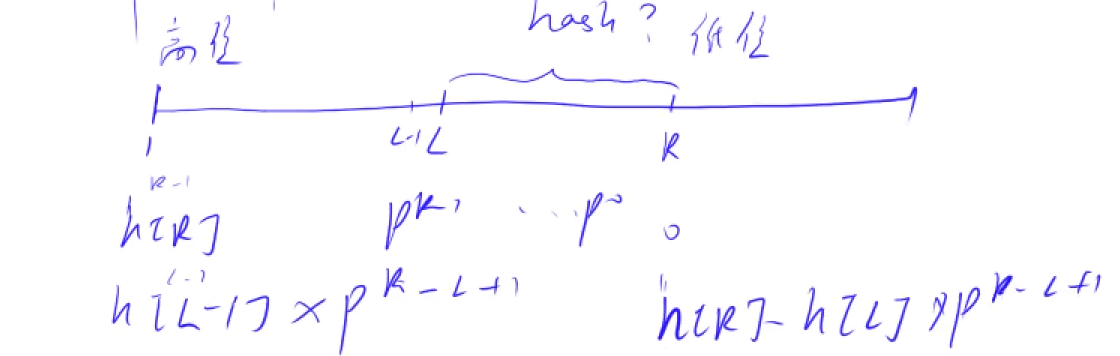 hash?
高位 低位
1 L-1 L R
R-1
h[R] p^{R-1} ... p^0 0
h[L-1] × p^{R-L+1} h[R] - h[L] × p^{R-L+1}